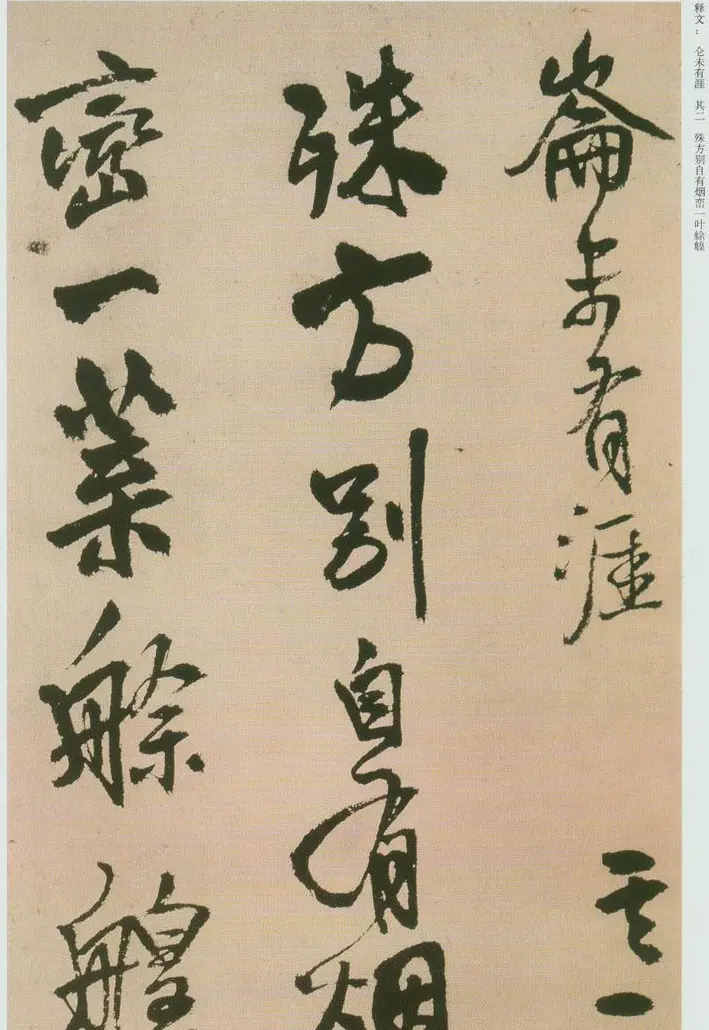 释文： 仑未有涯 其二 殊方别自有烟峦一叶艅艎
崙未有涯 其二
殊方别自有烟
峦一葉艅艎